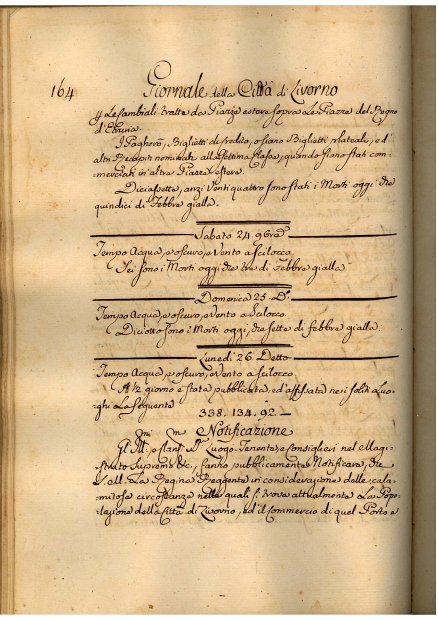 164 Giornale della Città di Livorno
Le Cambiali tratte da Piazze estere sopra Le Piazze del Regno
d'Etruria.
I Pagherò, Biglietti di Credito, o siano Biglietti, ed
altri Recapiti nominati alla settima Classe, quando siano stati com-
merciati in altra Piazza estera.
Diciassette, anzi Venti quattro sono stati i Morti oggi che
quindici di Febbre gialla.
Sabato 24. 9bre
Tempo Acqua, e oscuro, e Vento a Scilocco
Sei sono i Morti oggi che tre di Febbre gialla
Domenica 25. Do
Tempo Acqua, e oscuro, e Vento a Scilocco
Diciotto sono i Morti oggi, che sette di febbre gialla.
Lunedì 26. Detto
Tempo Acqua, e oscuro, e Vento a Scilocco
A 1/2 giorno è stata pubblicata, ed affissata nei soliti Luo-
ghi La Seguente
338. 134. 92. —
Notificazione
Gl' Luogo-Tenente, e Consiglieri nel Magi-
strato Supremo &c. fanno pubblicamente Notificare, che
S. M. La Regina Reggente in considerazione delle cala-
mitose circostanze nelle quali si trova attualmente La Popo-
lazione della Città di Livorno, ed il Commercio di quel Porto e